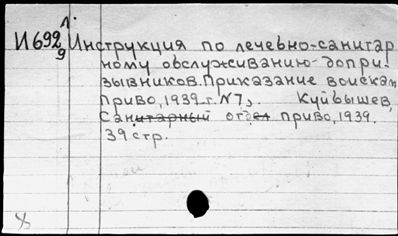 Л.
И692 Инструкция по лечебно-санитар
9 ному обслуживанию допри-
зывников. Приказание войскам
приво, 1939 г. №7, Куйбышев,
Санитарный отдел приво, 1939.
39 стр.